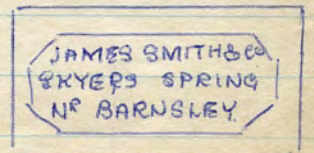 JAMES SMITH & Co
SKYERS SPRING
NR BARNSLEY.